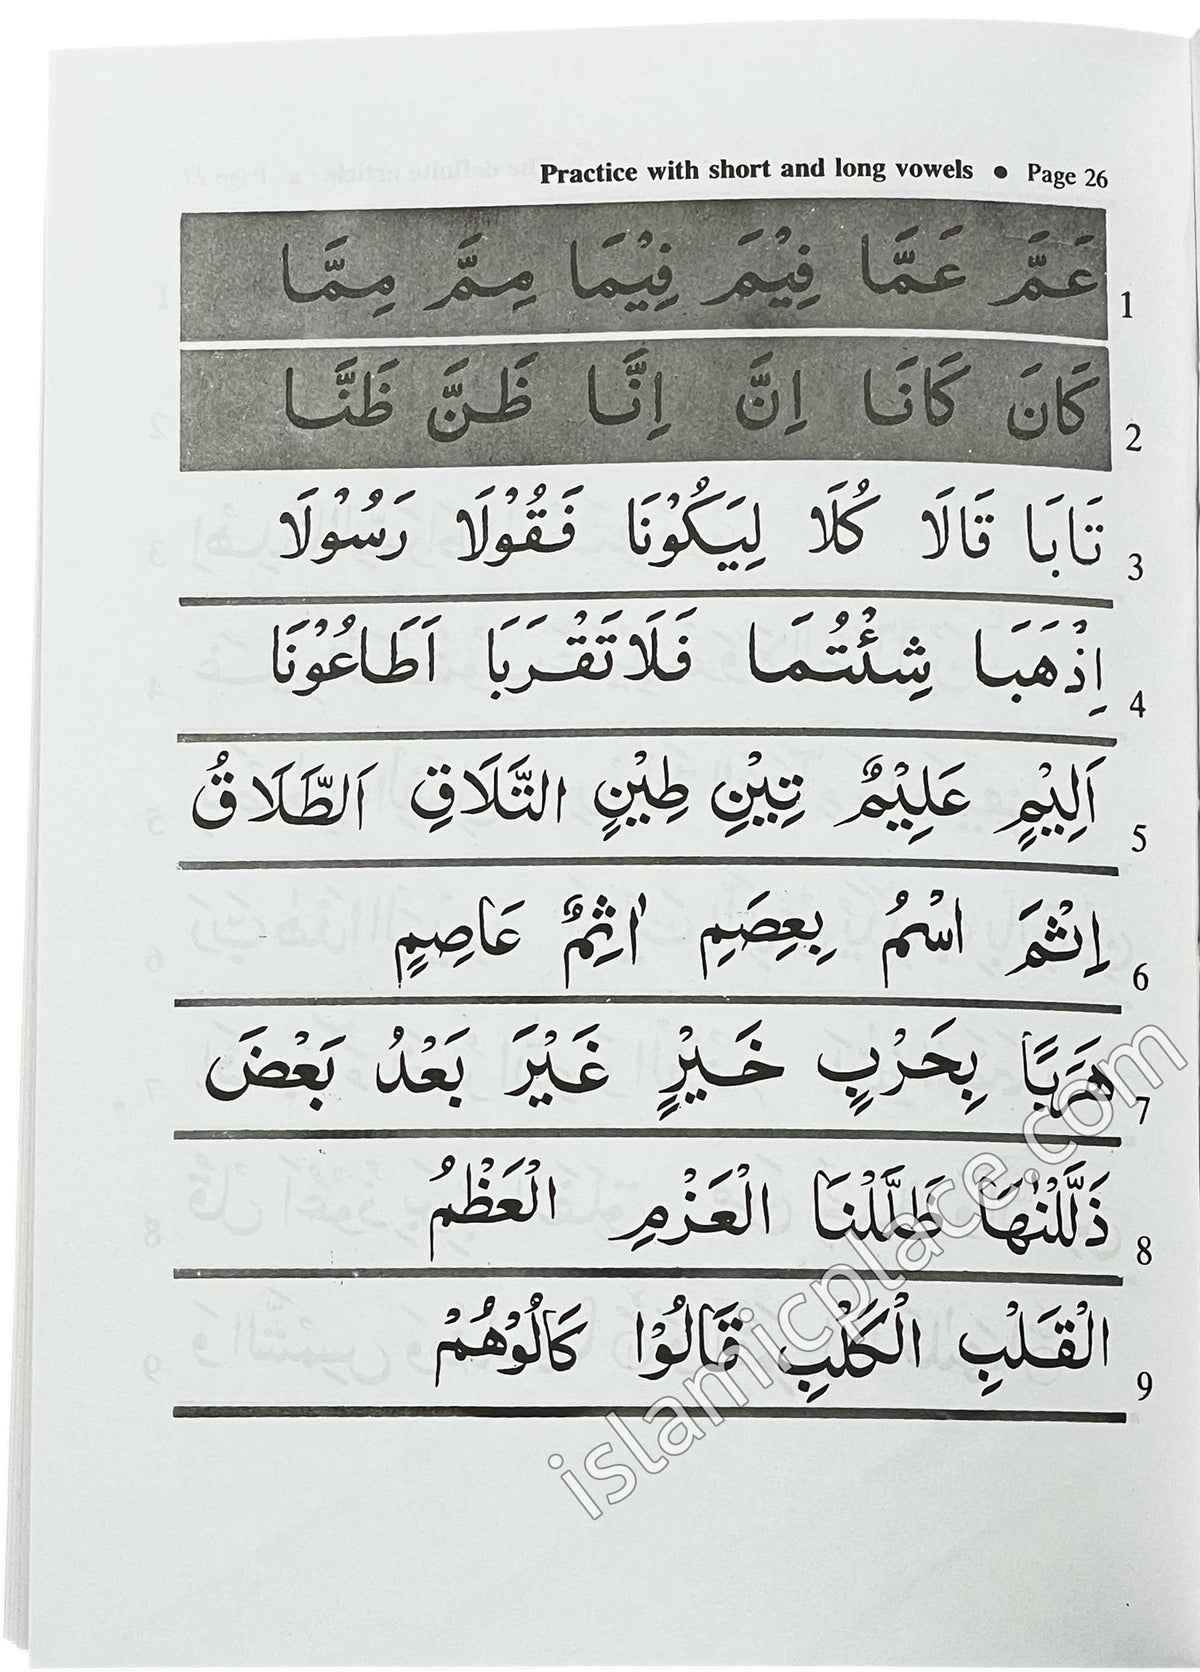 Practice with short and long vowels • Page 26
عَمَّ عَمَّا فِيْمَ فِيْمَا مِمَّ مِمَّا 1
كَانَ كَانَا اِنَّ اِنَّا ظَنَّ ظَنَّا 2
تَابَا قَالَا كُلَا لِيَكُوْنَا فَقُوْلَا رَسُوْلَا 3
اِذْهَبَا شِئْتُمَا فَلَا تَقْرَبَا اَطَاعُوْنَا 4
اَلِيْمٍ عَلِيْمٌ تِيْنِ طِيْنٍ التَّلَاقِ اَلطَّلَاقُ 5
اِثْمَ اسْمُ بِعِصَمِ اٰثِمٌ عَاصِمٍ 6
هَرَبًا بِحَرْبٍ خَيْرٍ غَيْرَ بَعْدُ بَعْضَ 7
ذَلَّلْنٰهَا ظَلَّلْنَا الْعَزْمِ الْعَظْمُ 8
الْقَلْبِ الْكَلْبِ قَالُوْا كَالُوْهُمْ 9
islamicplace.com